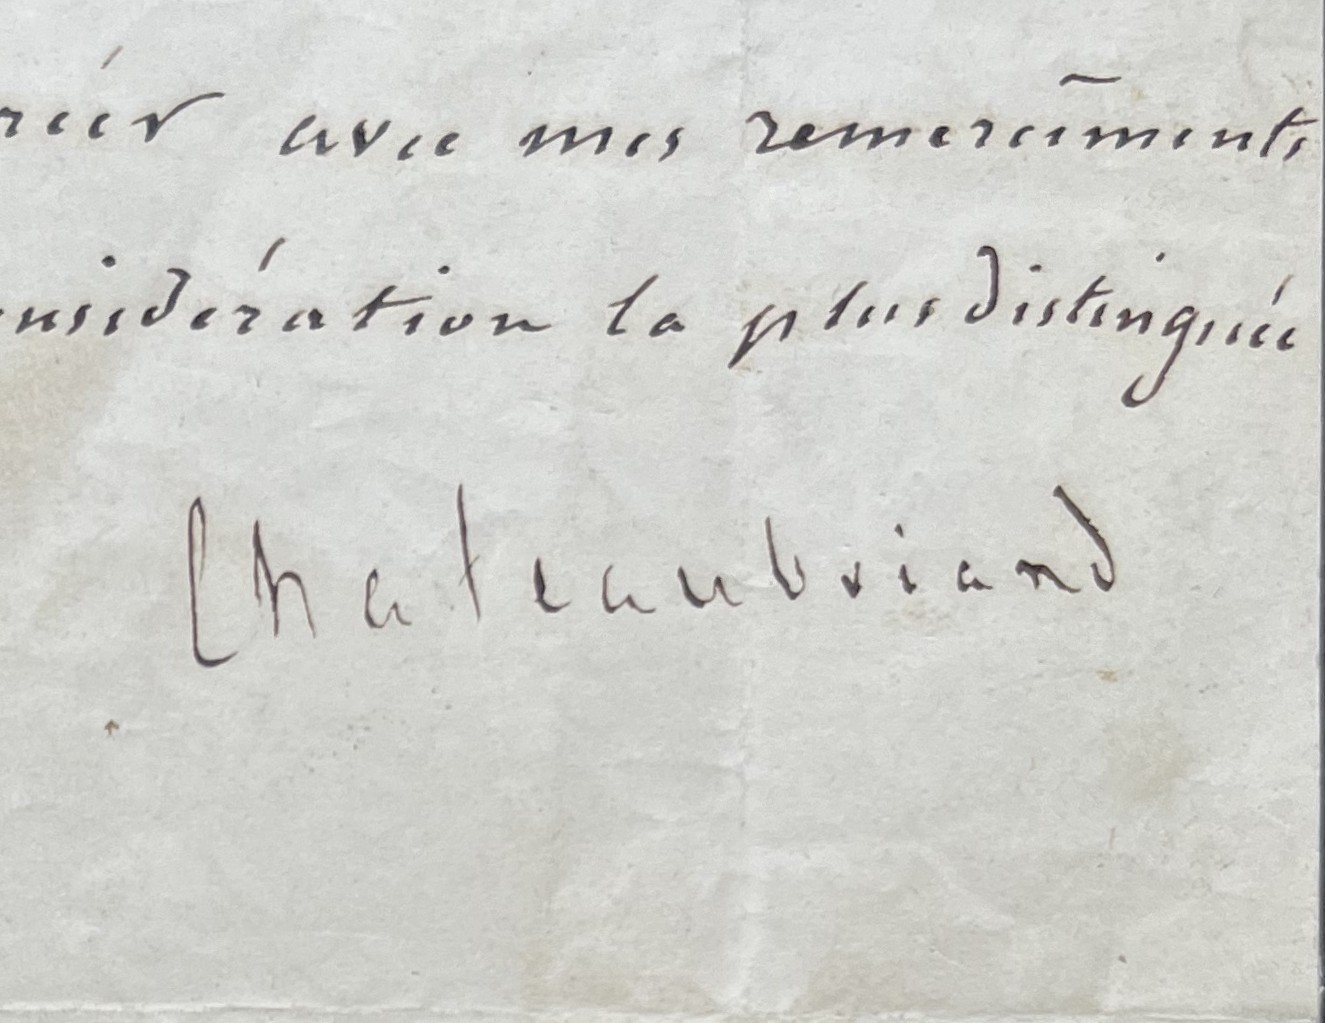 réer avec mes remercîments
onsidération la plus distinguée
Chateaubriand